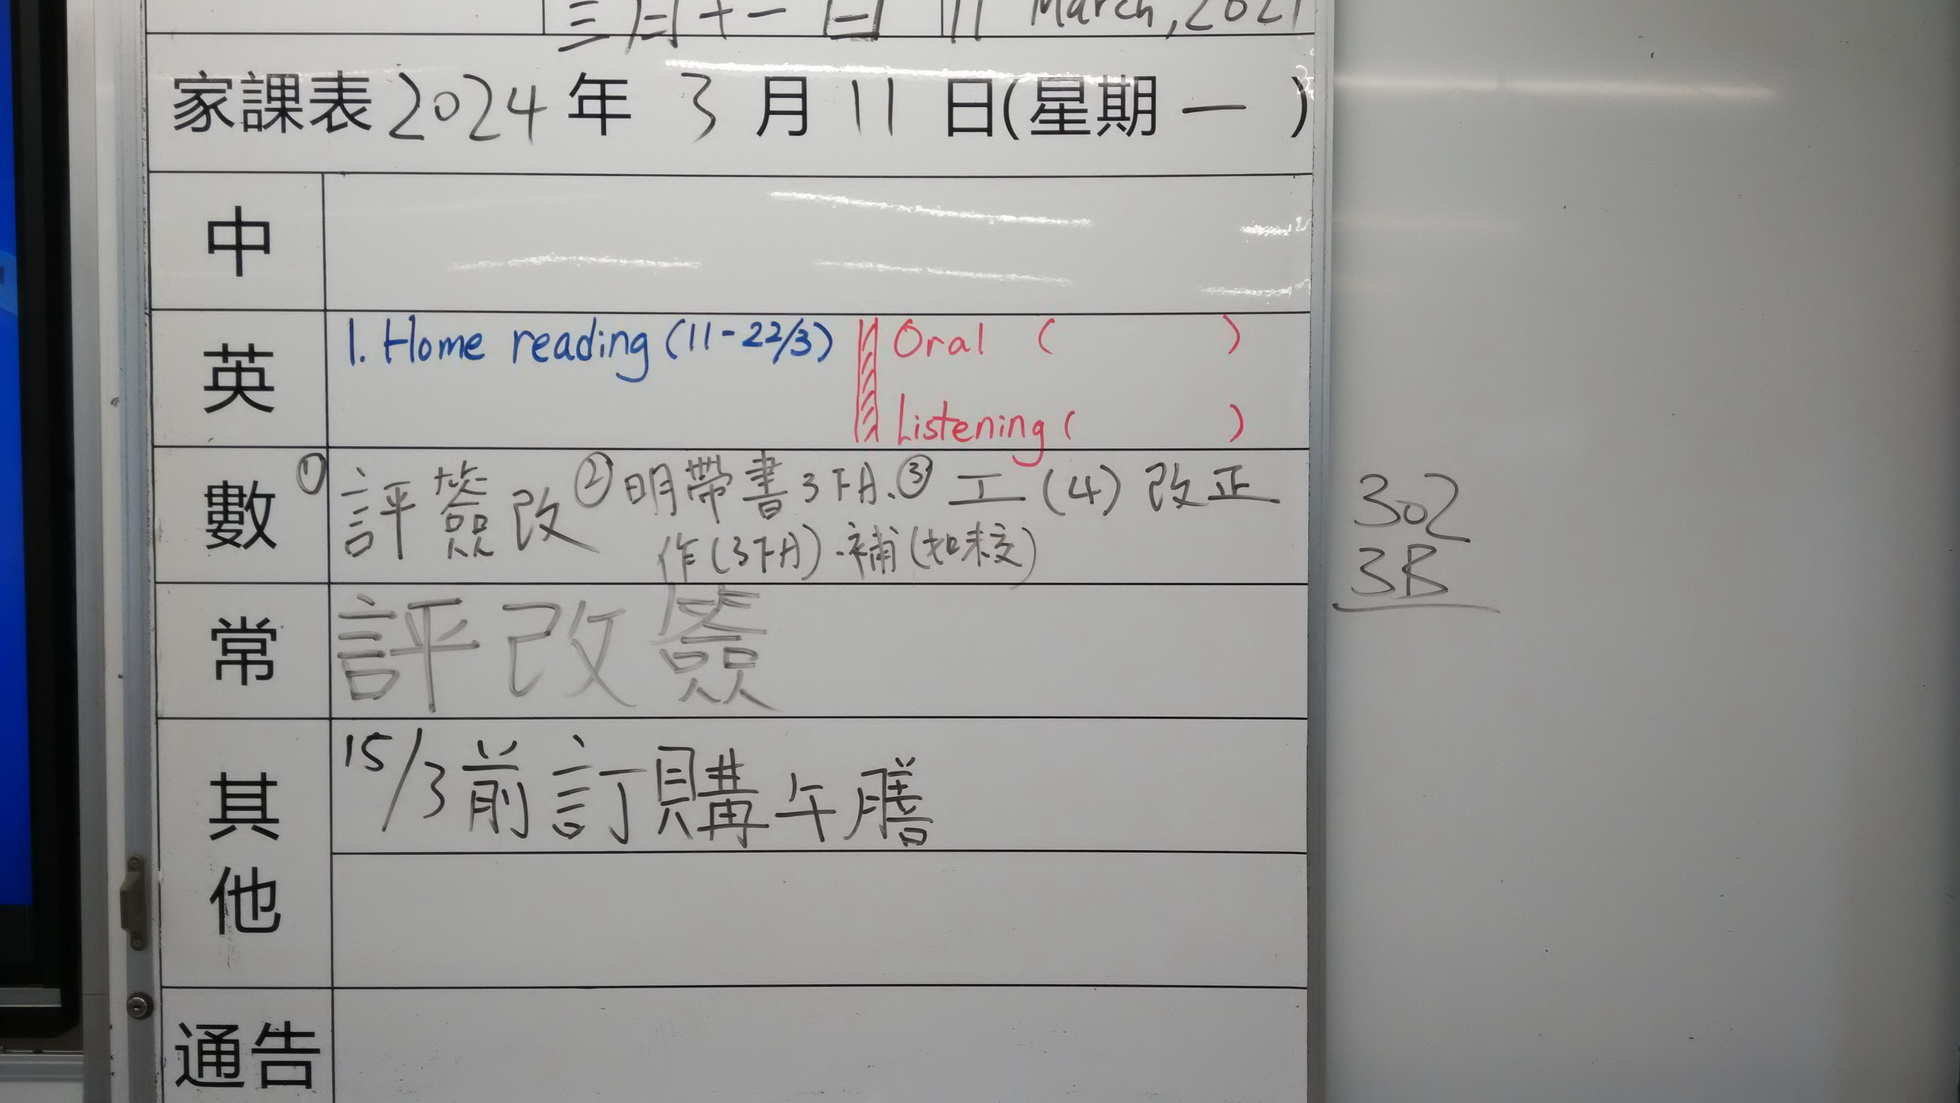 三月十一日 11 March, 2024
家課表 2024 年 3 月 11 日(星期 一 )
中
英
1. Home reading (11-22/3)
Oral ( )
Listening ( )
數
① 評簽改 ② 明帶書3下A. ③ 工(4)改正
作(3下A)、補(如未交)
302
3B
常
評改簽
其他
15/3前訂購午膳
通告